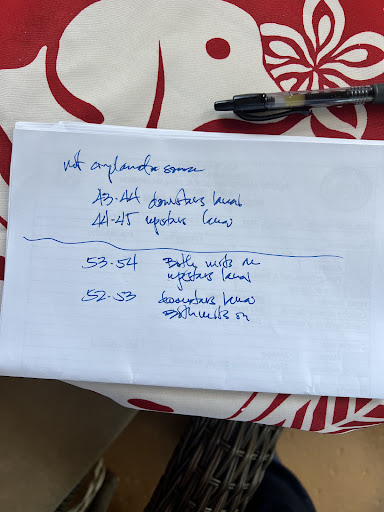 not
43-44 downstairs lanai
44-45 upstairs lanai
53-54 Both units on
upstairs lanai
52-53 downstairs lanai
Both units on